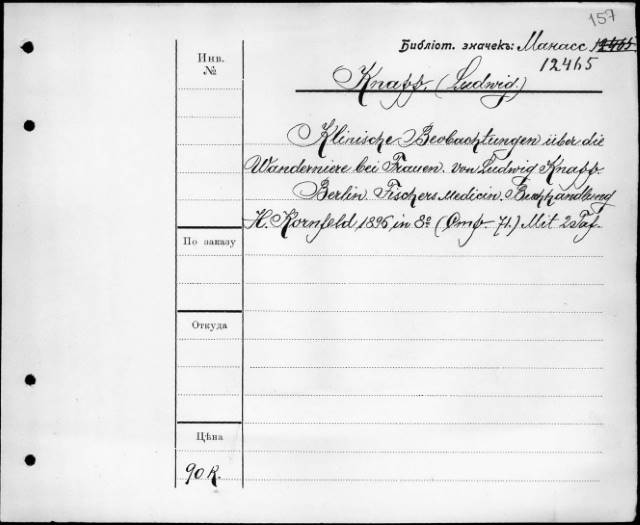 157
Библіот. значекъ: Манасс 12465
12465
Инв.
№
Knapp. (Ludwig.)
Klinische Beobachtungen über die
Wanderniere bei Frauen. von Ludwig Knapp.
Berlin. Fischers Medicin. Buchhandlung
H. Kornfeld, 1896 in 8º (Стр. 71.) Mit 2 Taf.
По заказу
Откуда
Цѣна
90 к.